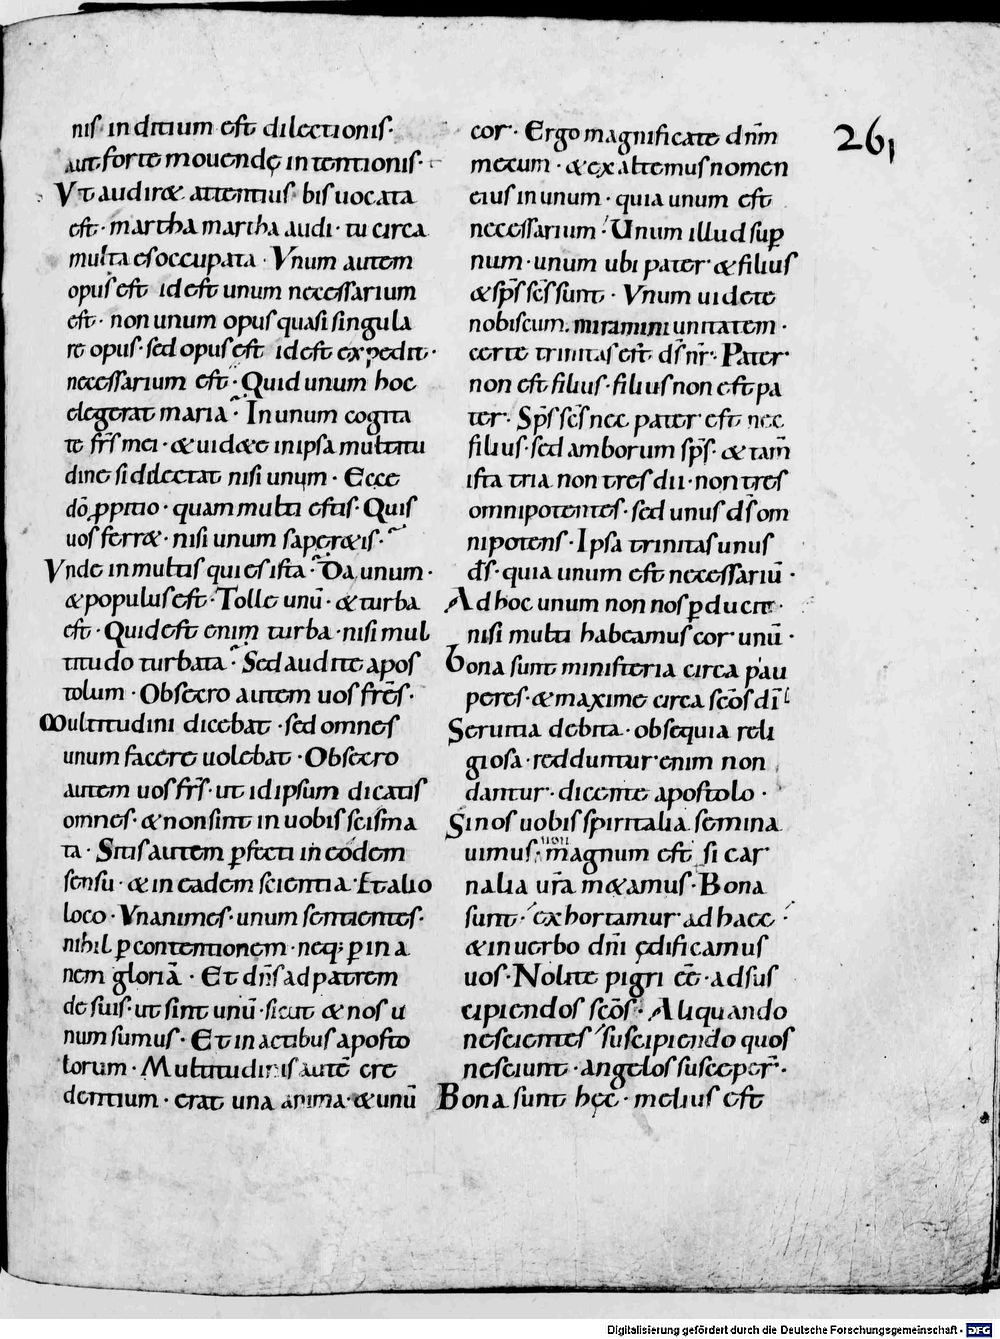 nis· inditium est dilectionis·
aut forte mouendę intentionis·
Vt audiret attentius· bis uocata
est· martha martha audi· tu circa
multa es occupata· Vnum autem
opus est id est unum necessarium
est· non unum opus quasi singula
re opus· sed opus est id est expedit·
necessarium est· Quid unum hoc
elegerat maria· In unum cogita
te frs̄ mei· & uidete in ipsa multitu
dine si dilectat nisi unum· Ecce
dō ꝓpitio· quam multi estis· Quis
uos ferret· nisi unum saperetis·
Vnde in multis qui es ista· Da unum·
& populus est· Tolle unū· & turba
est· Quid est enim turba· nisi mul
titudo turbata· Sed audite apos
tolum· Obsecro autem uos frēs·
Multitudini dicebat· sed omnes
unum facere uolebat· Obsecro
autem uos frs̄· ut id ipsum dicatis
omnes· & non sint in uobis scisma
ta· Sitis autem ꝑfecti in eodem
sensu· & in eadem scientia· Et alio
loco· Vnanimes· unum sentientes·
nihil ꝑ contentionem· neq; ꝑ ina
nem gloriā· Et dn̄s ad patrem
de suis· ut sint unū· sicut & nos u
num sumus· Et in actibus aposto
lorum· Multitudinis autē cre
dentium· erat una anima· & unū
cor· Ergo magnificate dn̄m
mecum· & exaltemus nomen
eius in unum· quia unum est
necessarium· Unum illud suꝑ
num· unum ubi pater & filius
& sps̄ scs̄ sunt· Vnum uidete
nobiscum. miramini unitatem·
certe trinitas est ds̄ nr̄· Pater
non est filius· filius non est pa
ter· Sps̄ scs̄ nec pater est nec
filius· sed amborum sps̄· & tam̄
ista tria non tres dii· non tres
omnipotentes· sed unus ds̄ om
nipotens· Ipsa trinitas unus
ds̄· quia unum est necessariū·
Ad hoc unum non nos ꝑducit·
nisi multi habeamus cor unū·
Bona sunt ministeria circa pau
peres· & maxime circa scōs dī
Seruitia debita· obsequia reli
giosa· redduntur enim non
dantur· dicente apostolo·
Si nos uobis spiritalia semina
uimus· non magnum est si car
nalia ur̄a metamus· Bona
sunt· exhortamur ad haec
& in uerbo dn̄i ędificamus
uos· Nolite pigri eē· ad sus
cipiendos scōs· Aliquando
nescientes suscipiendo quos
nesciunt· angelos susceper̄·
Bona sunt hęc· melius est
261
Digitalisierung gefördert durch die Deutsche Forschungsgemeinschaft - DFG